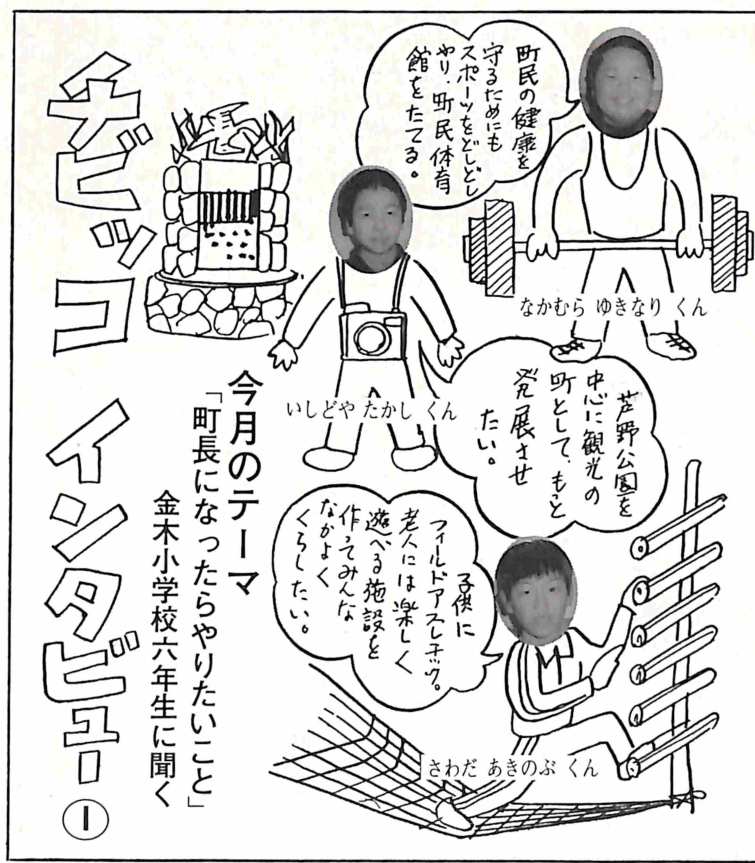 チビッコ インタビュー ①
今月のテーマ
「町長になったらやりたいこと」
金木小学校六年生に聞く
町民の健康を
守るためにも
スポーツをどしどし
やり、町民体育
館をたてる。
なかむら ゆきなり くん
芦野公園を
中心に観光の
町として、もっと
発展させ
たい。
いしどや たかし くん
子供に
フィールドアスレチック。
老人には楽しく
遊べる施設を
作ってみんな
なかよく
くらしたい。
さわだ あきのぶ くん